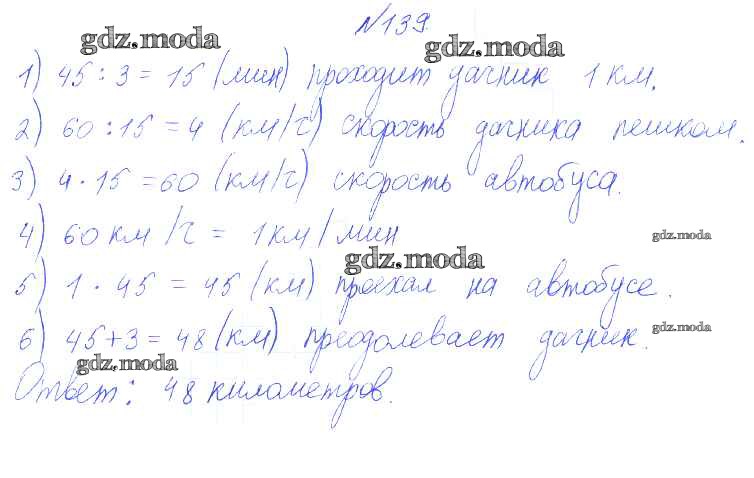 №139.
gdz.moda
gdz.moda
1) 45 : 3 = 15 (мин) проходит дачник 1 км.
2) 60 : 15 = 4 (км/ч) скорость дачника пешком.
3) 4 · 15 = 60 (км/ч) скорость автобуса.
4) 60 км/ч = 1 км/мин
gdz.moda
gdz.moda
5) 1 · 45 = 45 (км) проехал на автобусе.
6) 45+3 = 48 (км) преодолевает дачник.
gdz.moda
gdz.moda
Ответ: 48 километров.